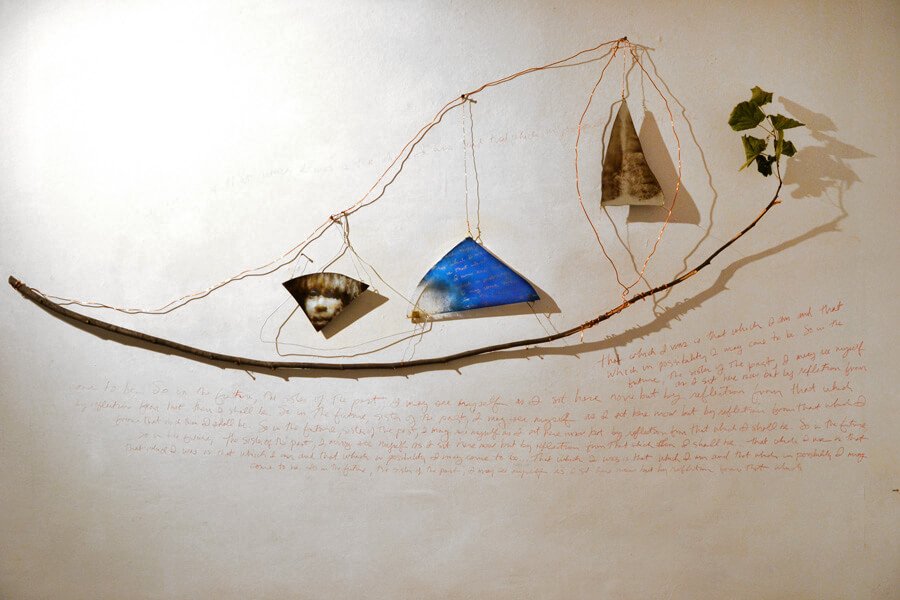 That which I was is that which I am and that
which in possibility I may come to be. So in the
future, the sister of the past, I may see myself
as I sit here now but by reflection from
me to be. So in the future, the sister of the past I may see myself as I sit here now but by reflection from that which
by reflection from that I shall be. So in the future sister of the past, I may see myself as I sit here now but by reflection from that which I
from that which I shall be. So in the future, sister of the past, I may see myself as I sit here now but by reflection from that which I should be. So in the future
So in the future, the sister of the past, I may see myself as I sit here now but by reflection from that which then I shall be. That which I was is that
that which I was is that which I am and that which in possibility I may come to be. That which I was is that which I am and that which in possibility I may
come to be. So in the future, the sister of the past, I may see myself as I sit here now but by reflection from that which